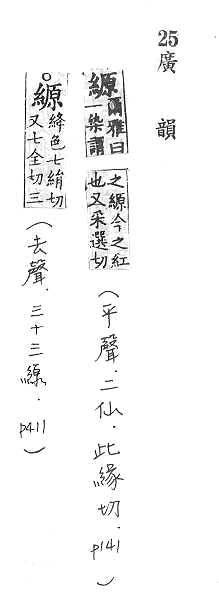 25廣韻
縓爾雅曰一染謂之縓今之紅也又采選切(平聲.二仙.此緣切.p141)
○縓絳色七絹切又七全切三(去聲.三十三線.p411)